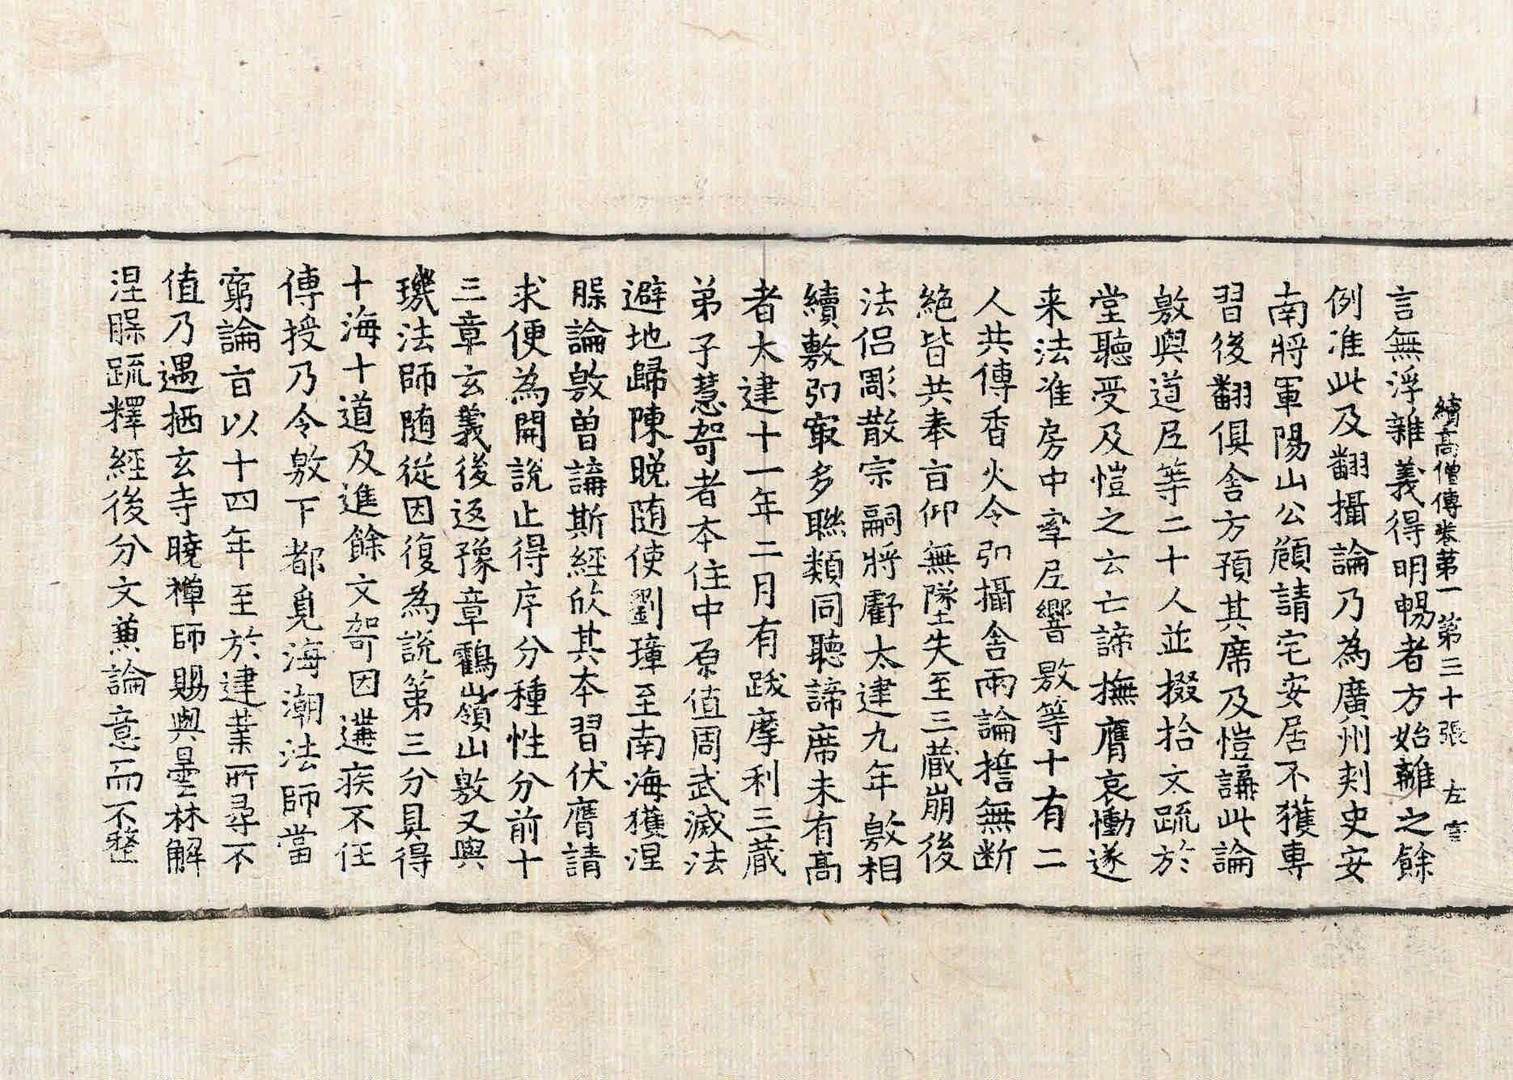 續高僧傳卷第一 第三十張 左
言無浮雜義得明暢者方始離之餘
例准此及翻攝論乃為廣州刾史安
南將軍陽山公頠請宅安居不獲專
習後翻俱舍方預其席及愷講此論
敫與道尼等二十人並掇拾文疏於
堂聽受及愷之云亡諦撫膺哀慟遂
来法准房中率尼響敫等十有二
人共傳香火令弘攝舍兩論誓無断
絕皆共奉旨仰無墜失至三藏崩後
法侣彫散宗嗣將虧太建九年敫相
續敷弘㝡多聯類同聽諦席未有高
者太建十一年二月有跋摩利三藏
弟子慧哿者本住中原值周武滅法
避地歸陳晚随使劉璋至南海獲涅
𣊺論敫曾講斯經欣其本習伏膺請
求便為開說止得序分種性分前十
三章玄義後返豫章鸖嶺山敫又與
璣法師随從因復為說第三分具得
十海十道及進餘文哿因遘疾不任
傳授乃令敫下都覓海潮法師當
窮論旨以十四年至於建業所尋不
值乃遇栖玄寺曉禅師賜與曇林解
涅𣊺疏釋經後分文兼論意而不整